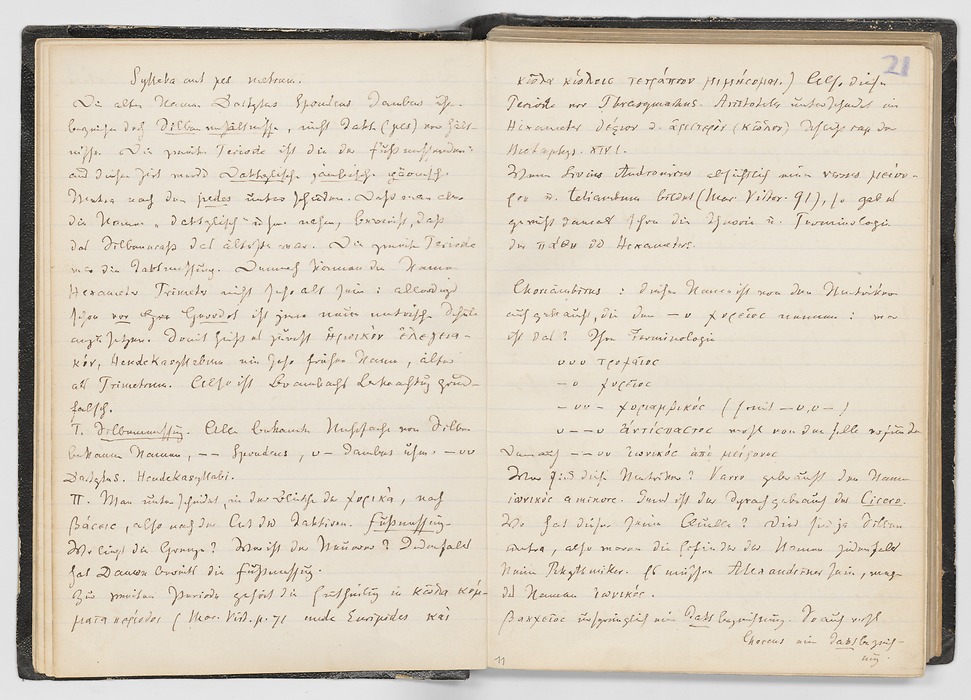 Sylleba aut pes metrum.
Die alten Namen Dactylus Spondeus Jambus usw.
bezeichnen doch Silbenverhältnisse, nicht Takte (pes) verhält-
nisse. Die zweite Periode ist die der Fußmessenden:
auf diese Zeit wurde Dactylische jambische päonische
Metra nach den pedes unterschieden. Daß man aber
die Namen „dactylisch" usw. nahm, beweist, daß
das Silbenmaaß das älteste war. Die zweite Periode
war die Taktmessung. Demnach können die Namen
Hexameter Trimeter nicht sehr alt sein: allerdings
schon vor Herodot ist jene neue metrische Schule
anzusetzen. Damit heißt es zuerst ἡρωικὸν ἐλεγεια-
κόν, Hendekasyllabum ein sehr früher Name, älter
als Trimetrum. Also ist Brambachs Betrachtung grund-
falsch.
I. Silbenmessung. Alle bekannte Metra von Silben
bekamen Namen, – – Spondeus, ᴗ – Jambus usw. – ᴗᴗ
Dactylus. Hendekasyllabi.
II. Man unterscheidet, in der Blüthe der χορικά, nach
βάσεις, also nach der Art des Taktirens. Fußmessung.
Wo liegt die Grenze? Wer ist der Neuerer? Jedenfalls
hat Damon bereits die Fußmessung.
Zur zweiten Periode gehört die Eintheilung in κῶλα κόμ-
ματα περίοδος (Mar. Vict. p. 71 unde Euripides καὶ
21
κῶλα κώλοις τετράπτον μιμήσομαι.) Also diese
Periode vor Thrasymachus. Aristoteles unterscheidet im
Hexameter δεξιὸν u. ἀριστερόν (κῶλον)
Metaphys. XIV 1.
Wenn Livius Andronicus absichtlich einen versus μείου-
ρον u. teliambum bildet (Mar. Viktor. 91), so gab es
gewiß damals schon die Theorie u. Terminologie
der πάθη des Hexameters.
Choriambicus: dieser Name ist von den Metrikern
aufgebracht, die den – ᴗ χορεῖος nennen: wer
ist das? Ihre Terminologie
ᴗᴗᴗ τροχαῖος
– ᴗ χορεῖος
– ᴗᴗ – χοριαμβικός (somit – ᴗ, ᴗ –)
ᴗ – – ᴗ ἀντίσπαστος wohl von derselben
Demnach – – ᴗᴗ ἰωνικὸς ἀπὸ μείζονος
Wer sind diese Metriker? Varro gebraucht den Namen
ἰωνικὸς a minore. Dann ist der Sprachgebrauch des Cicero.
Wo hat dieser seine Quelle? Dies sind ja Silben
metra, also waren die Erfinder der Namen jedenfalls
keine Rhythmiker. Es müssen Alexandriner sein, wegen
des Namens ἰωνικός.
βακχεῖος ursprünglich eine Taktbezeichnung. So auch wohl
Choreus eine Taktbezeich-
nung.
11